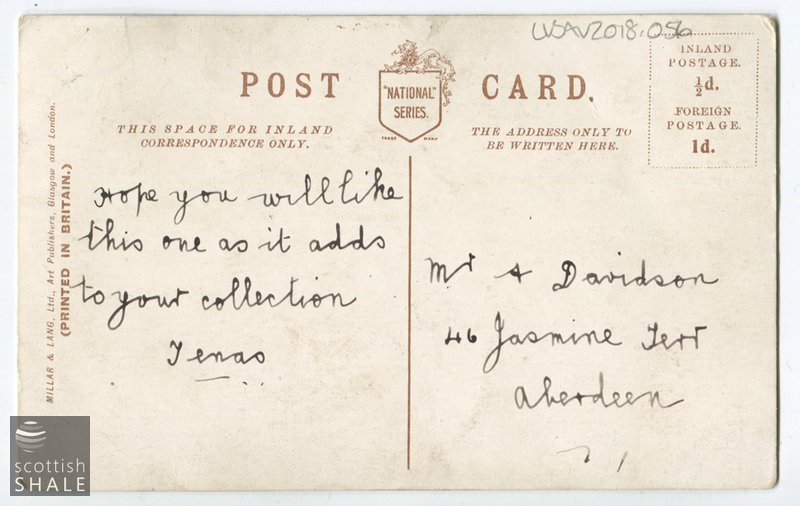 LVSAV2018.056
POST CARD.
"NATIONAL"
SERIES.
TRADE MARK
THIS SPACE FOR INLAND
CORRESPONDENCE ONLY.
THE ADDRESS ONLY TO
BE WRITTEN HERE.
INLAND
POSTAGE.
½d.
FOREIGN
POSTAGE.
1d.
MILLAR & LANG, Ltd., Art Publishers, Glasgow and London.
(PRINTED IN BRITAIN.)
Hope you will like
this one as it adds
to your collection
Mr A Davidson
46 Jasmine Terr
Aberdeen
scottish
SHALE